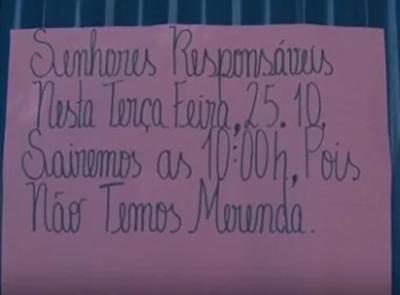 Senhores Responsáveis
Nesta Terça Feira, 25.10,
Sairemos as 10:00h, Pois
Não Temos Merenda.